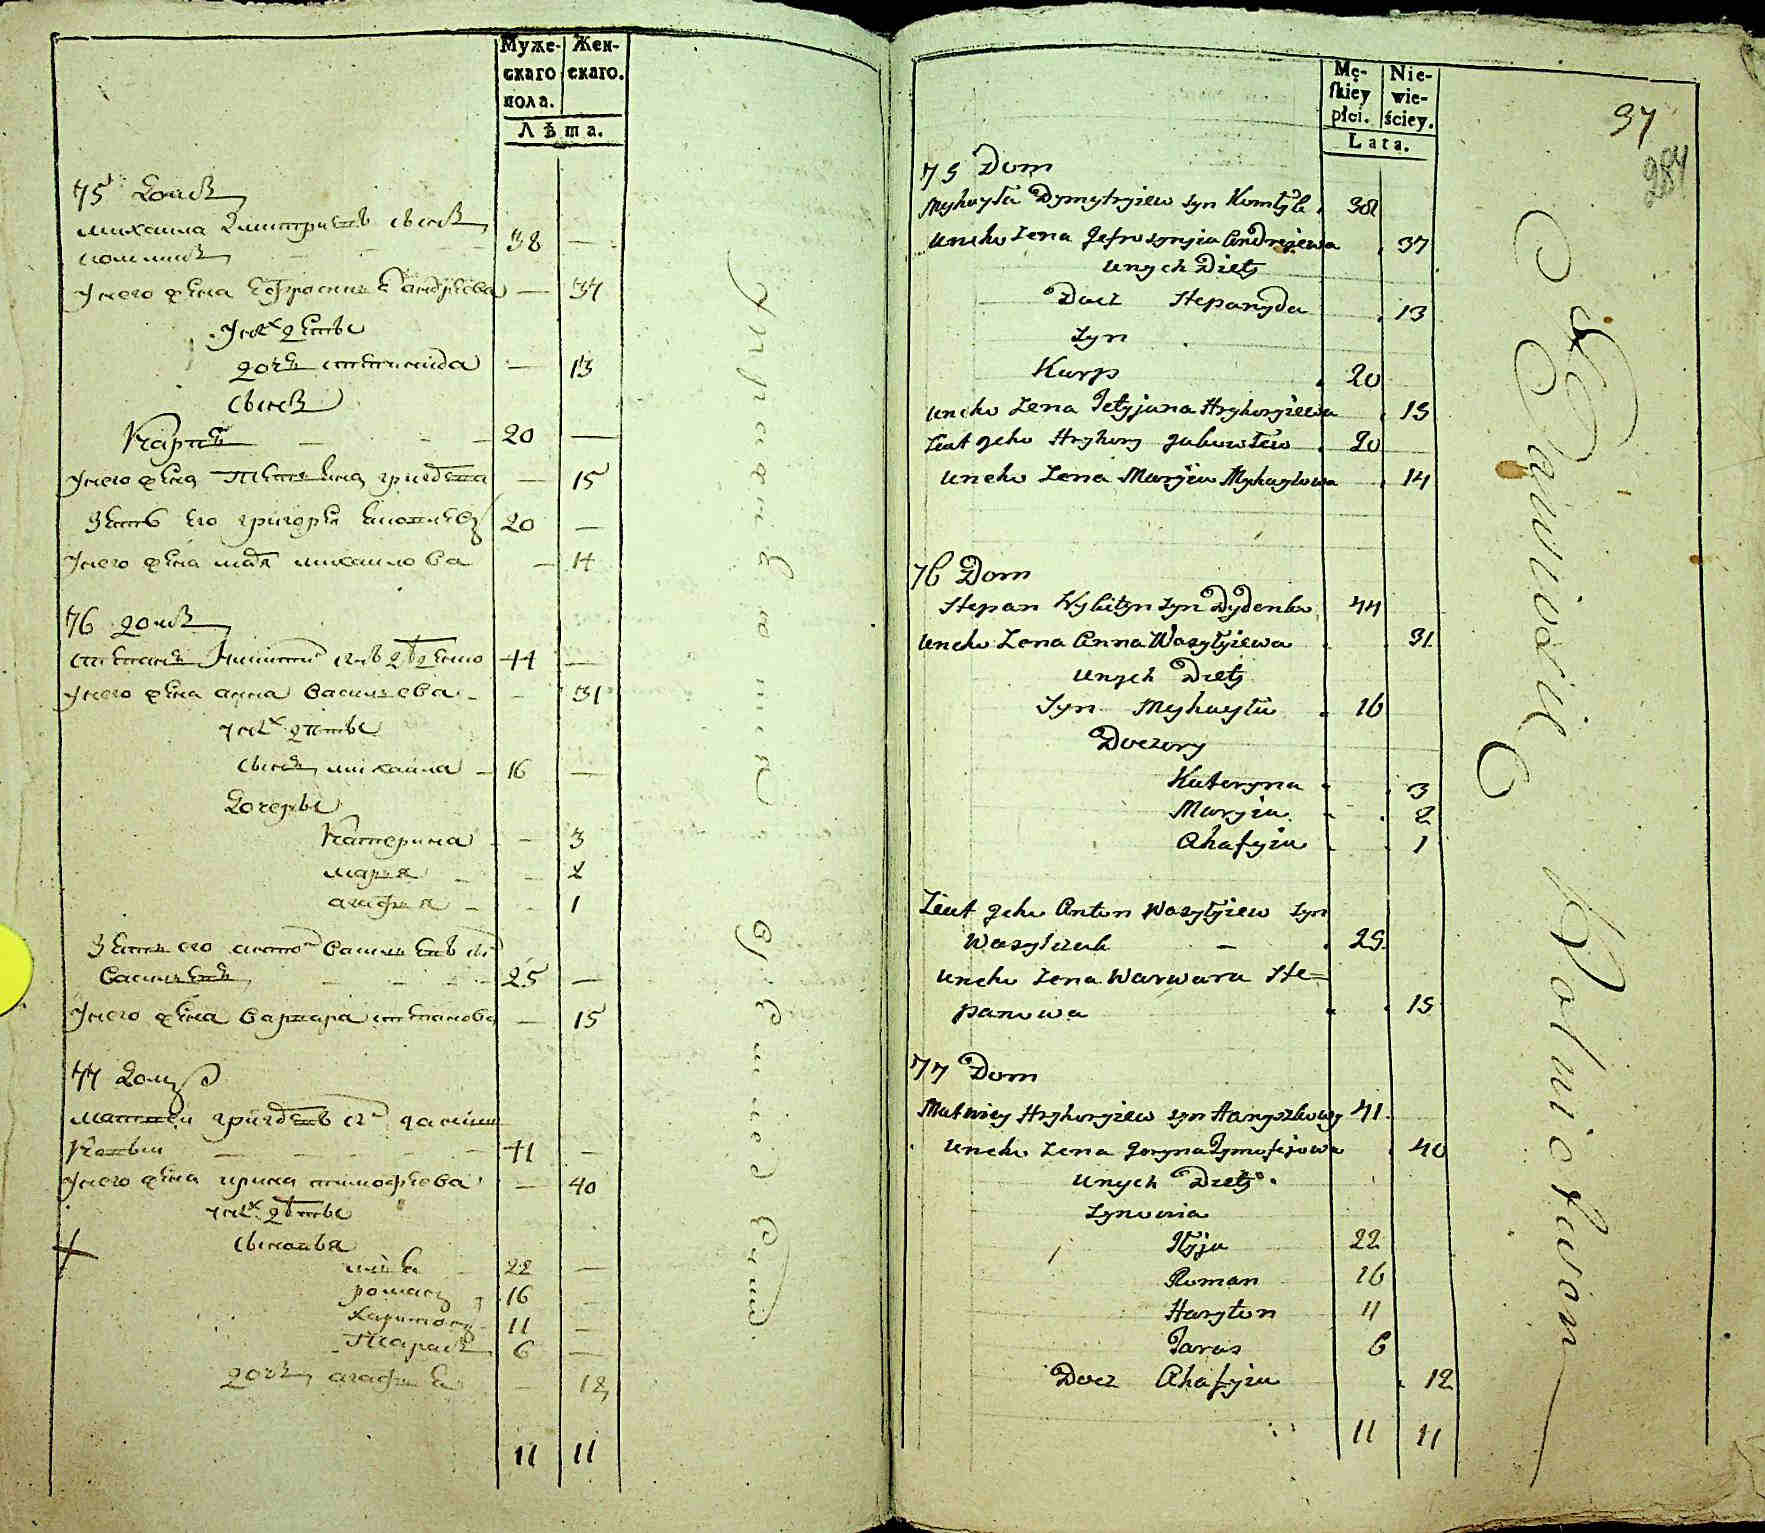 Муже-
скаго
пола.
Жен-
скаго.
Лѣта.
75 домъ
михаила Дмитриевъ сынъ
38 —
у него жена Ефросиния андреева — 37
у них дети
дочь степанида — 13
сынъ
Карпъ — 20 —
у него жена Татияна григорева — 15
Зять его григорей 20 —
у него жена маря михаилова — 14
76 домъ
степанъ 44 —
у него жена анна василиева — 31
у них дети
сынъ михаила — 16 —
дочеры
Катерина — 3
мария — 2
агафия — 1
Зять его антон василиевъ
25 —
у него жена варвара степанова — 15
77 домъ
матвеи григоревъ
41 —
у него жена ирина тимофеева — 40
у них дети
сыновья
илья 22 —
романъ 16 —
харитонъ 11 —
Тарасъ 6 —
дочь агафия — 12
11 11
Mę-
skiey
płci.
Nie-
wie-
ściey.
Lata.
37
284
75 Dom
Myhayła Dymytryiew syn 38
uneho Zena Jefrosynyia Andrejewa 37
unych Diety
Docz Stepanyda 13
Syn
Karp 20
uneho Zena Tetyjana Hryhoryiewa 15
Ziat jeho Hryhory Jakowlew 20
uneho Zena Maryia Myhaylowa 14
76 Dom
Stepan Nykityn syn Dydenko 44
uneho Zena Anna Wasylyiewa 31
unych Diety
Syn Myhayła 16
Doczery
Kateryna 3
Maryia 2
Ahafyia 1
Ziat jeho Anton Wasylyiew syn
Wasylczuk — 25
uneho Zena Warwara Ste=
panowa 15
77 Dom
Matwiey Hryhoryiew syn 41
uneho Zena Joryna Tymofiejowa 40
unych Diety
Synowia
Ilyja 22
Roman 16
Haryton 11
Taras 6
Docz Ahafyia 12
11 11